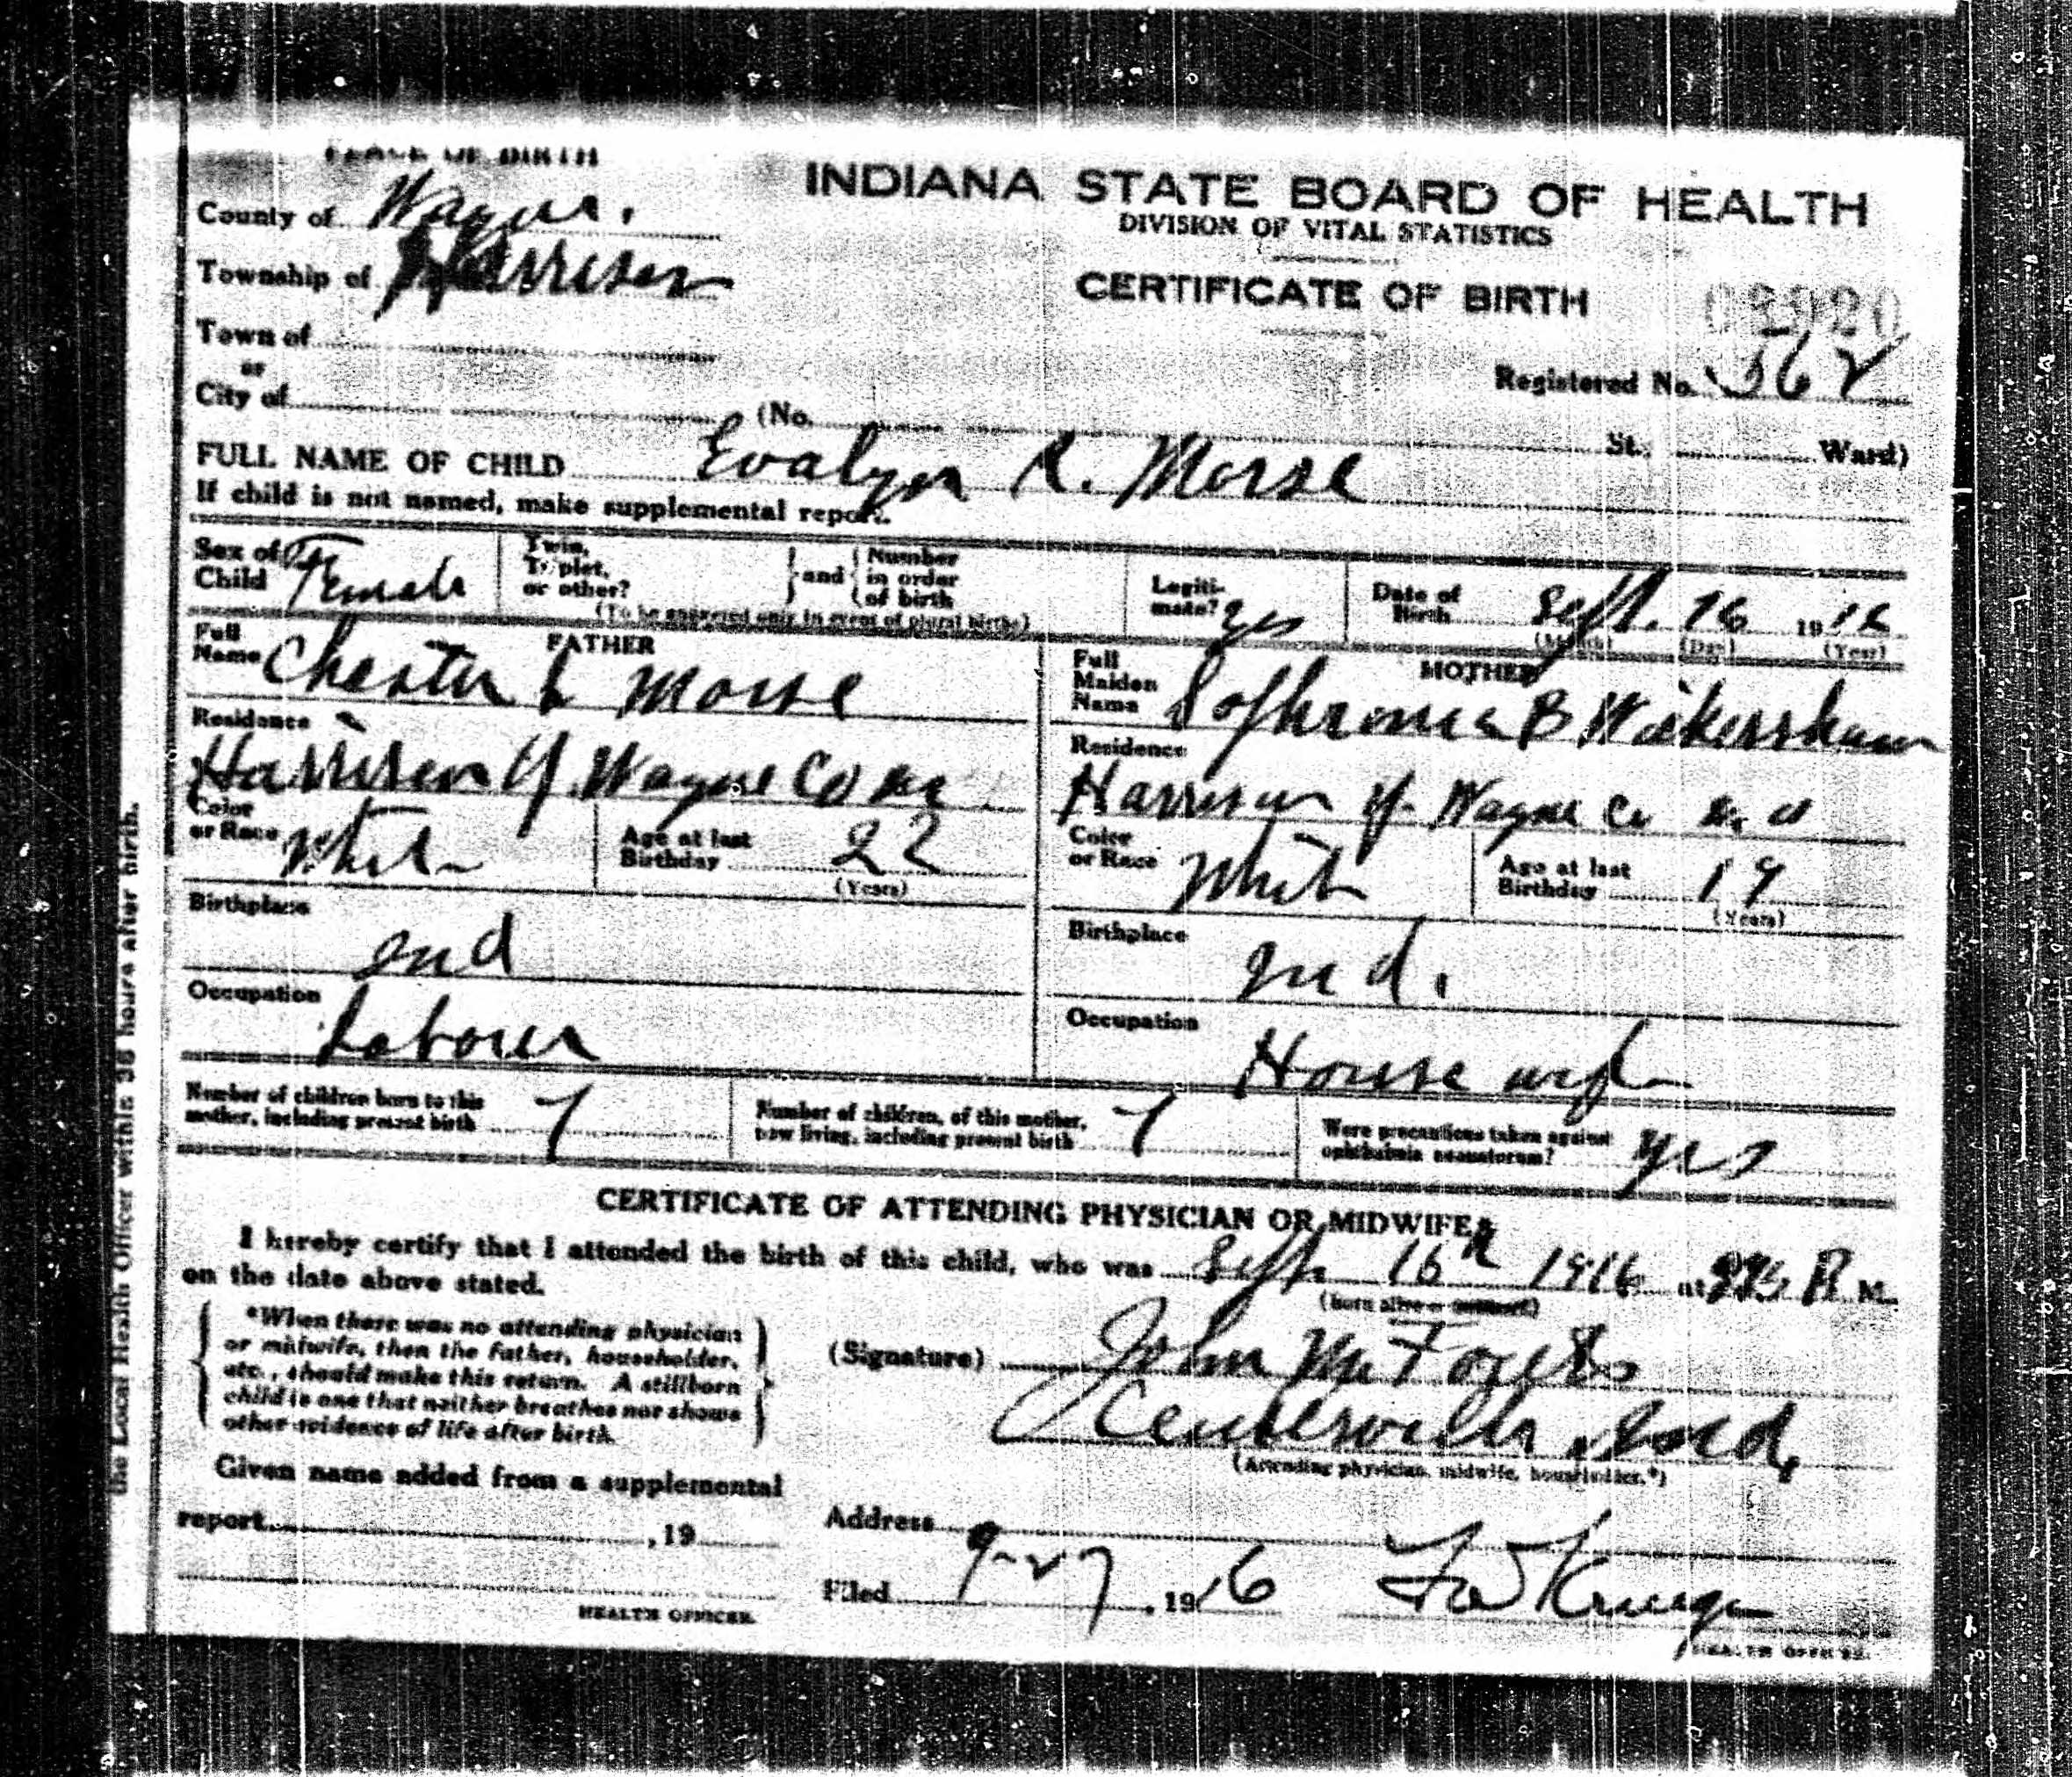 PLACE OF BIRTH
INDIANA STATE BOARD OF HEALTH
DIVISION OF VITAL STATISTICS
CERTIFICATE OF BIRTH
County of Wayne.
Township of Harrison
Town of
or
City of (No. St.; Ward)
Registered No. 562
FULL NAME OF CHILD Evalyn R. Morse
If child is not named, make supplemental report.
Sex of Child Female
Twin, Triplet, or other? and Number in order of birth
(To be answered only in event of plural births)
Legitimate? yes
Date of Birth Sept. 16 1916
(Month) (Day) (Year)
FATHER
Full Name Chester L Morse
Residence
Harrison Wayne Co
Color or Race White
Age at last Birthday 22
(Years)
Birthplace
Ind
Occupation
Laborer
MOTHER
Full Maiden Name Sophronia B Wickersham
Residence
Harrison Wayne Co
Color or Race White
Age at last Birthday 19
(Years)
Birthplace
Ind.
Occupation
House wife
Number of children born to this mother, including present birth 1
Number of children, of this mother, now living, including present birth 1
Were precautions taken against ophthalmia neonatorum? yes
CERTIFICATE OF ATTENDING PHYSICIAN OR MIDWIFE
I hereby certify that I attended the birth of this child, who was Sept. 16th 1916 at P M.
(born alive or stillborn)
on the date above stated.
*When there was no attending physician
or midwife, then the father, householder,
etc., should make this return. A stillborn
child is one that neither breathes nor shows
other evidence of life after birth.
(Signature) John M
Centerville, Ind,
(Attending physician, midwife, householder.*)
Given name added from a supplemental
report , 19
HEALTH OFFICER
Address
Filed 9-27, 1916 F W Krueger
HEALTH OFFICER.
the Local Health Officer within 36 hours after birth.